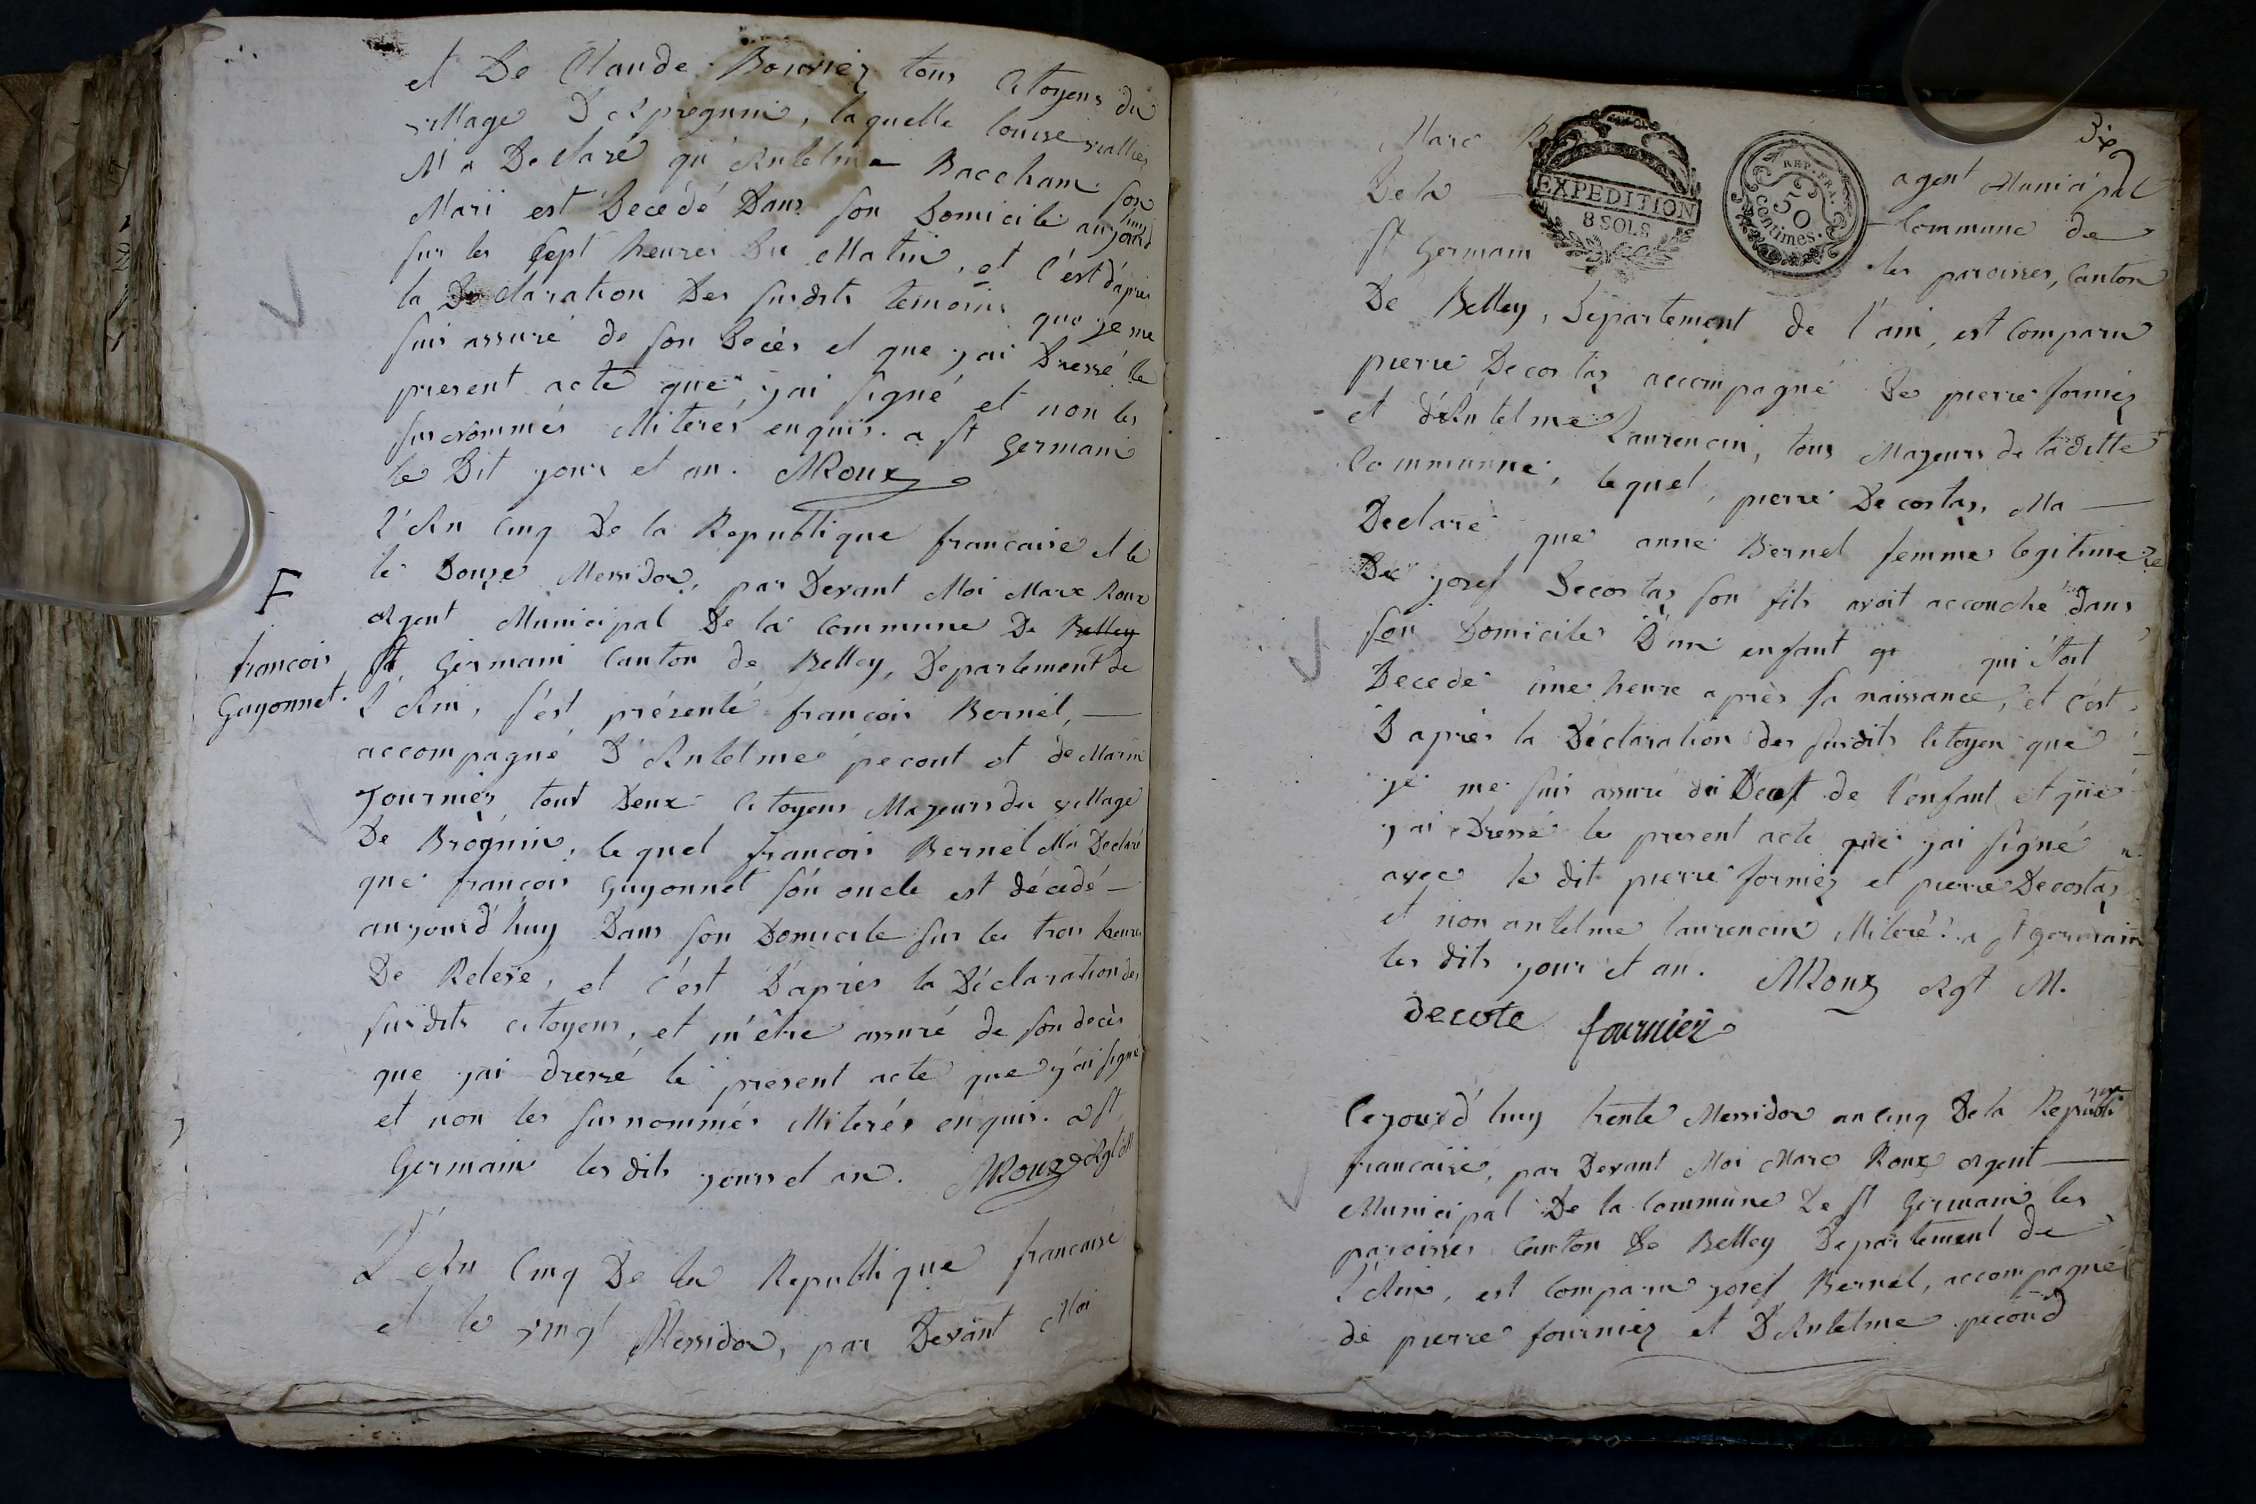 et De Claude Bouvier tous Citoyens du
village D'espregnin, laquelle louise vallier
M'a Declaré qu'Antelme Baccham son
Mari est Decedé Dans son Domicile aujourdhuy
sur les sept heures Du Matin, et C'est d'apres
la Declaration Des susdits temoins que je me
suis assuré de son Decès et que j'ai Dressé le
present acte que j'ai signé et non les
surnommés Miterés enquis. a St Germain
le Dit jour et an. MRoux
L'An Cinq De la Republique francaise et le
le Douze Messidor, par Devant Moi Marc Roux
Agent Municipal De la Commune De Belley
F
francois
Guyonnet.
St Germain Canton de Belley, Departement de
L'Ain, s'est présenté francois Bernel,
accompagné D'Antelme pecout et de Marin
fournier tout Deux Citoyens Majeurs du village
De Brégnin, lequel francois Bernel M'a Declaré
que francois Guyonnet son oncle est décedé
aujourd'huy Dans son Domicile sur les trois heures
De Relevé, et c'est D'aprés la Déclaration des
susdits citoyens, et m'être assuré de son decès
que j'ai dressé le present acte que j'ai signé
et non les surnommés Miterés enquis. a St
Germain les dits jours et an. MRoux Agt M
L'An Cinq De la Republique francaise
et le vingt Messidor, par Devant Moi
Dix
Marc R agent Municipal
EXPEDITION
8 SOLS
REP. FRA.
50
centimes.
De la Commune de
St Germain les paroisses, Canton
De Belley, Département de l'ain, est Comparu
pierre Decostaz accompagné De pierre forniez
et d'Antelme Laurencin, tous Majeurs de laditte
Communne, lequel, pierre Decostaz, Ma
Declaré que anne Bernel femme legitime
De josef Decostaz son fils avoit accouché dans
son Domicile D'un enfant qui étoit
Decedé une heure après sa naissance, et c'est
D'aprés la Déclaration des susdits Citoyen que
je me suis assuré du Deces de l'enfant et que
j'ai Dressé le present acte que j'ai signé
avec le dit pierre forniez et pierre Decostaz
et non antelme laurencin Miteré. a St germain
les dits jour et an. MRoux Agt M.
decote fournier
Cejourd'huy trente Messidor an cinq De la Republique
francaise, par Devant Moi Marc Roux Agent
Municipal De la Commune De St Germain les
paroisses Canton De Belley Departement de
L'Ain, est Comparu josef Bernel, accompagné
de pierre fourniez et D'Antelme pecoud